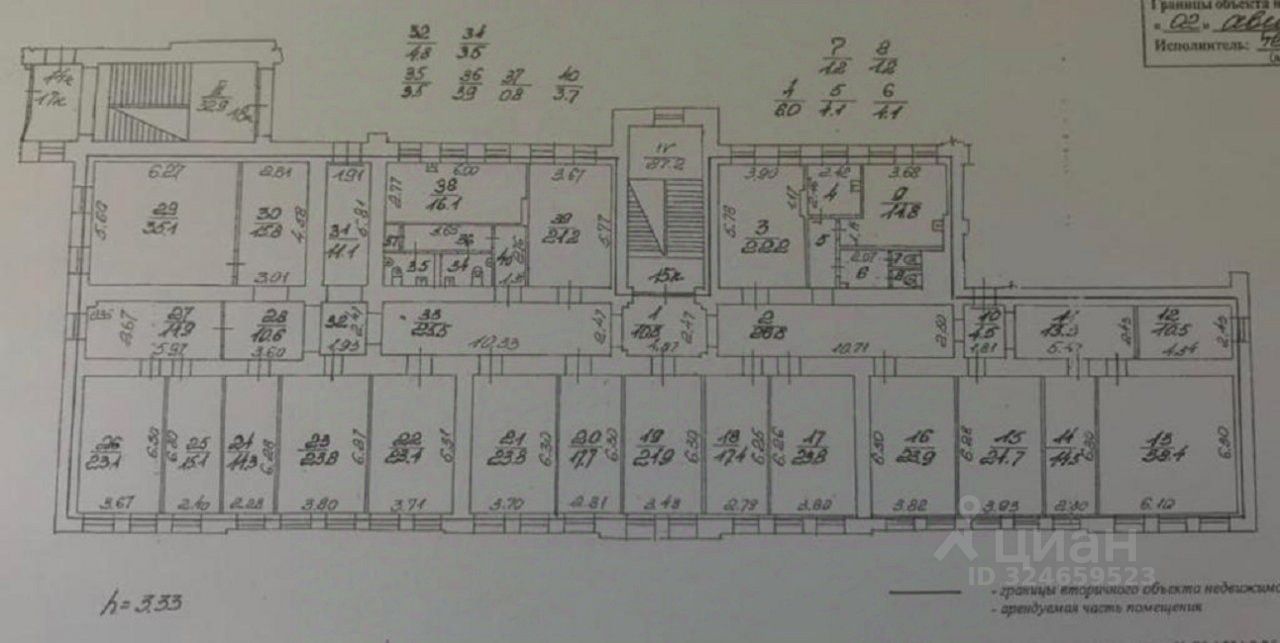 Границы объекта н
" 02 "
Исполнитель:
32
4.8
34
3.5
35
3.5
36
3.9
37
0.8
40
3.7
7
1.2
8
1.2
4
6.0
5
4.1
6
4.1
II
32.9
IV
27.2
6.27
2.81
1.91
6.00
3.67
3.90
2.42
3.68
5.60
29
35.1
30
15.8
4.58
31
11.1
5.81
2.77
38
16.1
39
21.2
5.77
5.78
3
22.2
4
9
14.8
3.01
3.65
36
37
35
34
40
5
2.07
6
7
8
15к
27
14.9
2.67
5.97
28
10.6
3.60
32
2.47
1.93
33
25.5
10.33
2.47
1
10.8
2.47
4.37
2
26.8
10.71
2.50
10
4.5
1.81
2.43
12
10.5
2.43
4.34
26
23.1
6.30
3.67
25
15.1
6.30
2.40
24
14.3
6.28
2.28
23
23.8
6.27
3.80
22
23.4
6.31
3.71
21
23.3
6.30
3.70
20
17.7
6.30
2.81
19
21.9
6.30
3.48
18
17.4
6.25
2.79
17
23.8
6.26
3.80
16
23.9
6.30
3.82
15
24.7
6.28
3.93
14
14.5
6.30
2.30
13
38.4
6.30
6.10
циан
ID 324659523
h = 3.33
- границы вторичного объекта недвижимо
- арендуемая часть помещения